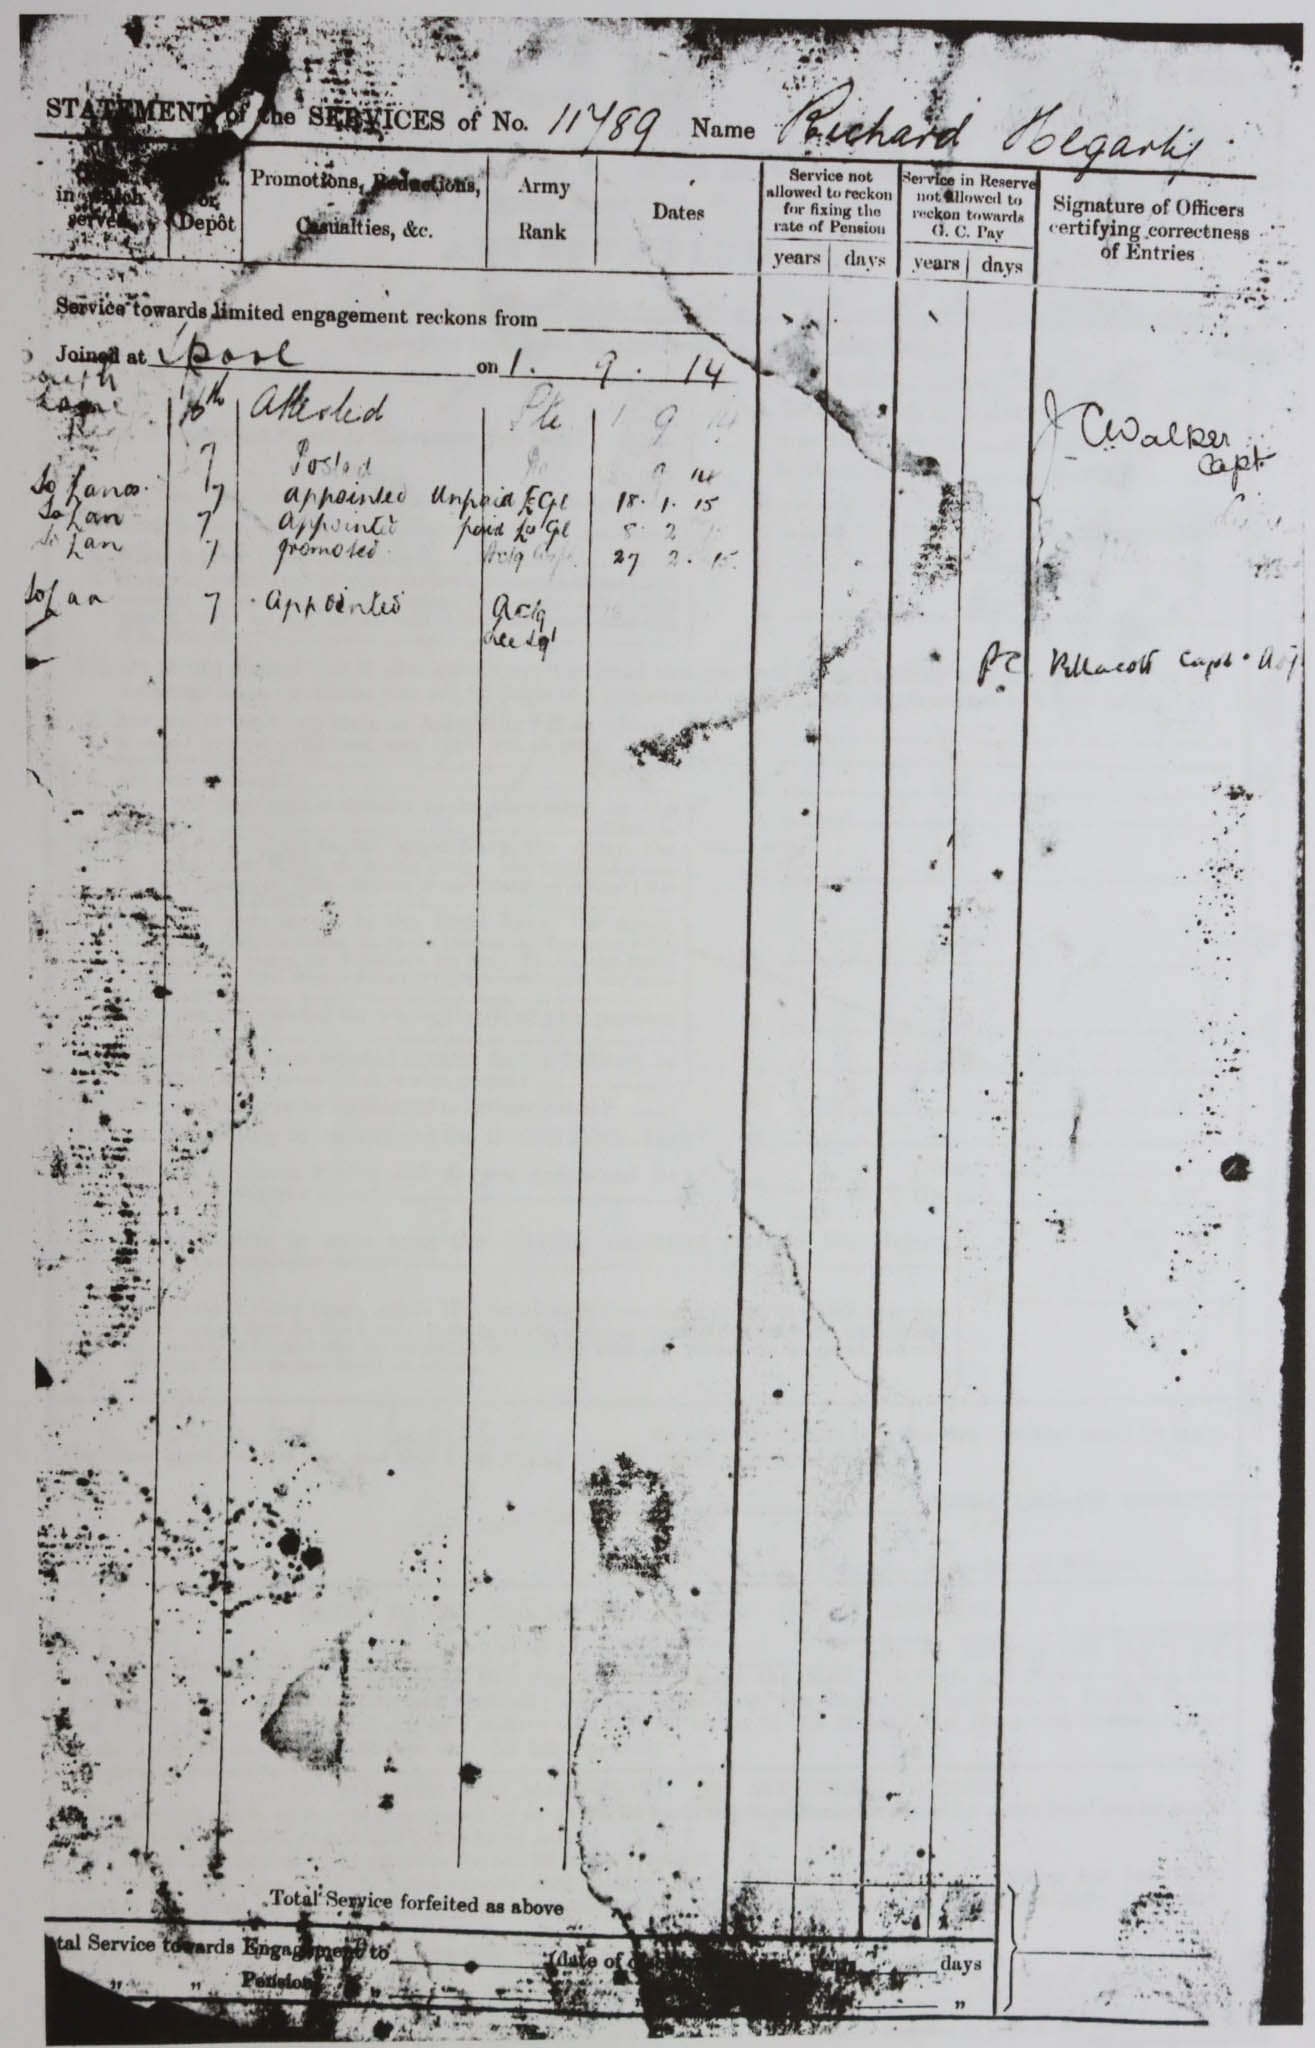 STATEMENT of the SERVICES of No. 11489 Name Richard Hegarty
in which served
or Depôt
Promotions, Reductions, Casualties, &c.
Army Rank
Dates
Service not allowed to reckon for fixing the rate of Pension
years days
Service in Reserve not allowed to reckon towards G. C. Pay
years days
Signature of Officers certifying correctness of Entries
Service towards limited engagement reckons from
Joined at L'pool on 1. 9. 14
South Lanc 16th Attested Pte 1 9 14
J C Walker Capt.
7 Posted 9 14
So Lancs. 7 appointed Unpaid L Cpl 18. 1. 15
So Lan 7 Appointed paid L Cpl 8 2
So Lan 7 promoted Actg 27 2. 15.
So Lan 7 Appointed Actg Sgt
Capt. Adj
Total Service forfeited as above
tal Service towards Engagement to (date of years days
„ „ Pension „ „ „